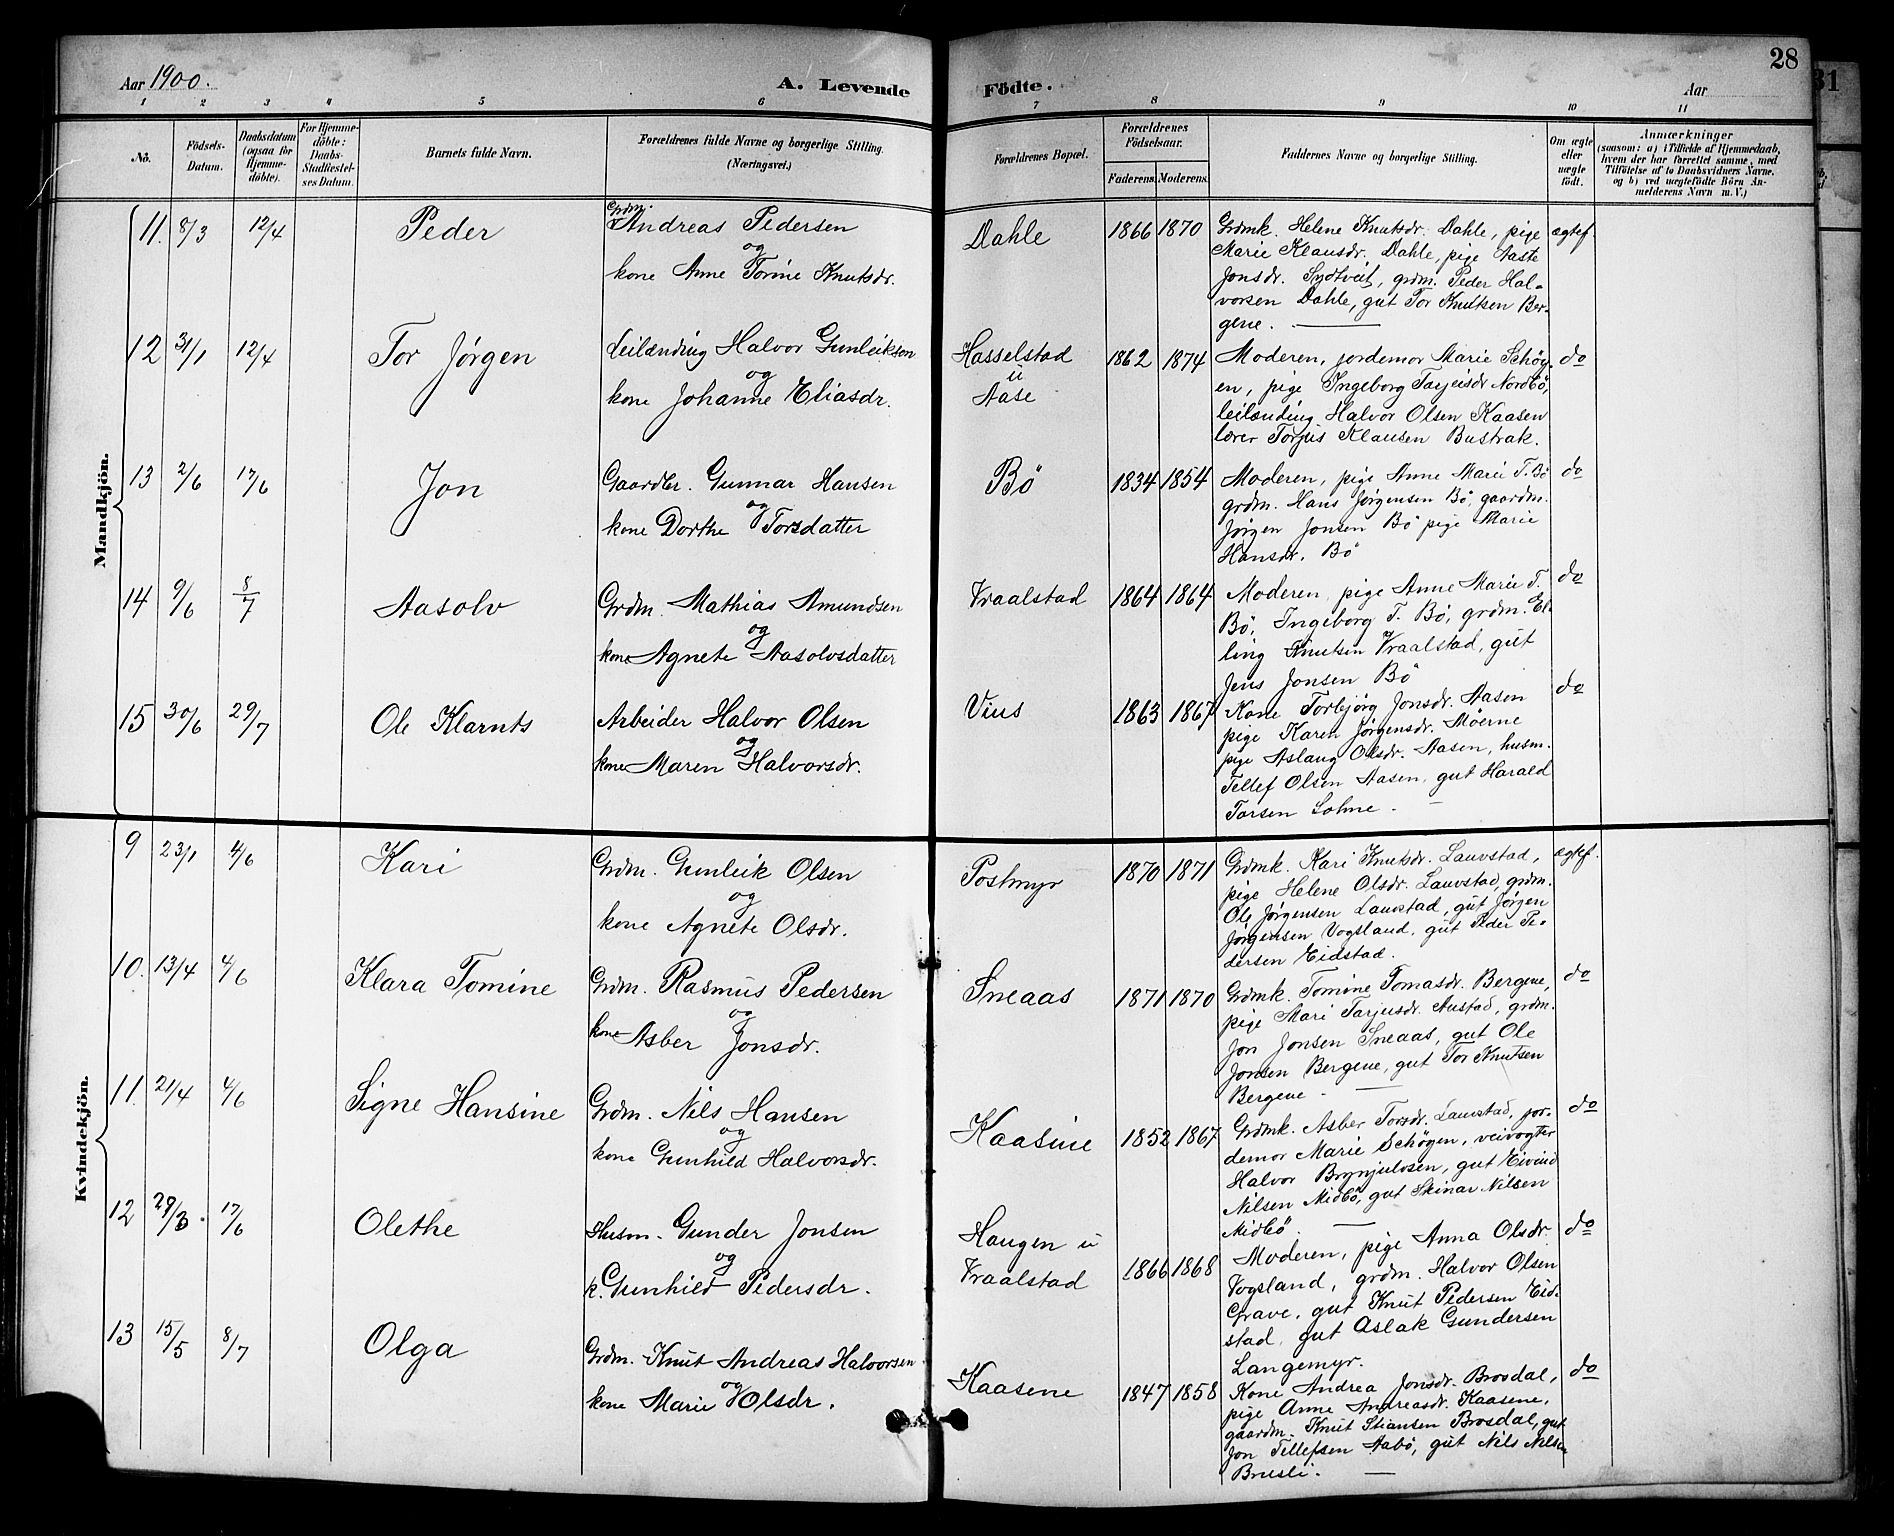 28
Aar 1900.
A. Levende Födte.
Aar
1 2 3 4 5 6 7 8 9 10 11
No.
Födsels-Datum.
Daabsdatum (ogsaa for Hjemme-döbte).
For Hjemme-döbte: Daabs-Stadfæstel-ses Datum.
Barnets fulde Navn.
Forældrenes fulde Navne og borgerlige Stilling.
(Næringsvei.)
Forældrenes Bopæl.
Forældrenes Födselsaar.
Faderens. Moderens.
Faddernes Navne og borgerlige Stilling.
Om ægte eller uægte födt.
Anmærkninger
(saasom: a) i Tilfælde af Hjemmedaab,
hvem der har forrettet samme, med
Tilföielse af to Daabsvidners Navne.
og b) ved uægtefödte Börn An-
melderens Navn m. V.)
Mandkjön.
11. 8/3 12/4 Peder
Grdm. Andreas Pedersen
og
kone Anne Torine Knutsdr.
Dahle 1866 1870
Grdmk. Helene Knutsdr. Dahle, pige
Marie Klausdr. Dahle, pige Aaste
Jonsdr. Sydtveit, grdm. Peder Hal-
vorsen Dahle, gut Tor Knutsen Ber-
gene.
ægtef.
12 31/1 12/4 Tor Jørgen
Leilænding Halvor Gunleikson
og
kone Johanne Eliasdr.
Hasselstad
u
Aase
1862 1874
Moderen, jordemor Marie Schöy-
en, pige Ingeborg Tarjeisdr Nordbö,
leilænding Halvor Olsen Kaasen
lærer Torjus Klausen Bustrak.
do
13 2/6 17/6 Jon
Gaardbr. Gunnar Hansen
og
kone Dorthe Torsdatter
Bö 1834 1854
Moderen, pige Anne Marie T. Bö
grdm. Hans Jørgensen Bö, gaardm.
Jørgen Jonsen Bö pige Marie
Hansdr. Bö
do
14 9/6 8/7 Aasolv
Grdm. Mathias Amundsen
og
kone Agnete Aasolvsdatter
Vraalstad 1864 1864
Moderen, pige Anne Marie T.
Bö, Ingeborg T. Bö, grdm. El-
ling Knutsen Vraalstad, gut
Jens Jonsen Bö
do
15 30/6 29/7 Ole Klarnts
Arbeider Halvor Olsen
og
kone Maren Halvorsdr.
Vius 1863 1867
Kone Torbjørg Jonsdr. Aasen
pige Karen Jørgensdr. Möerne
pige Aslaug Olsdr. Aasen, husm.
Tellef Olsen Aasen, gut Harald
Tarsen Lohne.
do
Kvindekjön.
9 23/1 4/6 Kari
Grdm. Gunleik Olsen
og
kone Agnete Olsdr.
Postmyr 1870 1871
Grdmk. Kari Knutsdr. Lauvstad,
pige Helene Olsdr. Lauvstad, grdm.
Ole Jørgensen Lauvstad, gut Jørgen
Jørgensen Vogsland, gut Peder Pe-
dersen Eidstad.
ægtef.
10. 13/4 4/6 Klara Tomine
Grdm. Rasmus Pedersen
og
kone Asber Jonsdr.
Sneaas 1871 1870
Grdmk. Tomine Tomasdr. Bergene,
pige Mari Tarjusdr. Austad, grdm.
Jon Jonsen Sneaas, gut Ole
Jonsen Bergene, gut Tor Knutsen
Bergene.
do
11. 21/4 4/6 Signe Hansine
Grdm. Nils Hansen
og
kone Gunhild Halvorsdr.
Kaasine 1852 1867
Grdmk. Asber Torsdr. Lauvstad, jor-
demor Marie Schögen, veivogter
Halvor Brynjulvsen, gut Eivind
Nilsen Midbö, gut Steinar Nilsen
Midbö.
do
12 29/3. 17/6 Olethe
Husm. Gunder Jonsen
og
k. Gunhild Pedersdr.
Haugen u
Vraalstad
1866 1868
Moderen, pige Anna Olsdr.
Vogsland, grdm. Halvor Olsen
Grave, gut Knut Pedersen Eid-
stad, gut Aslak Gundersen
Langemyr.
do
13 15/5 8/7 Olga
Grdm. Knut Andreas Halvorsen
og
kone Marie Olsdr.
Kaasene 1847 1858
Kone Andrea Jonsdr. Brosdal,
pige Anne Andreasdr. Kaasene,
gaardm. Knut Stiansen Brosdal, gut
Jon Tellefsen Aabö, gut Nils Nilsen
Brusli.
do
31